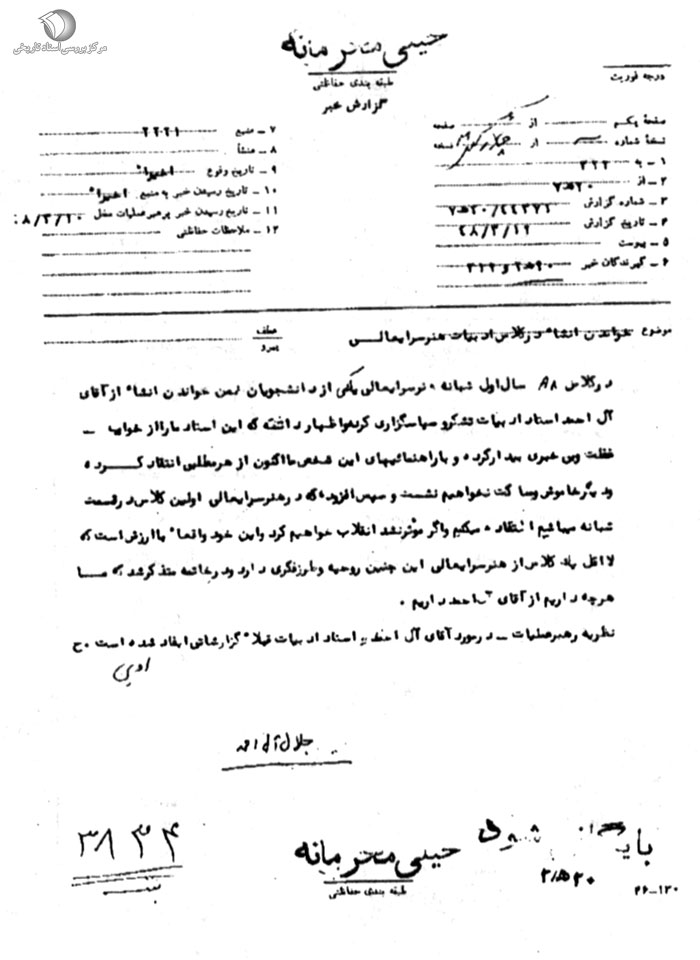 مرکز بررسی اسناد تاریخی
خیلی محرمانه
طبقه بندی حفاظتی
گزارش خبر
درجه فوریت
صفحه یکم از صفحه
نسخهٔ شماره از نسخه
۱ ـ به ۳۲۲
۲ ـ از ۲۰ﻫ۷
۳ ـ شماره گزارش ۲۰/۲۲۳۷۱ﻫ۷
۴ ـ تاریخ گزارش ۴۸/۳/۱۲
۵ ـ پیوست
۶ ـ گیرندگان خبر
۷ ـ منبع ۲۲۲۱
۸ ـ منشأ
۹ ـ تاریخ وقوع اخیراً
۱۰ ـ تاریخ رسیدن خبر به منبع اخیراً
۱۱ ـ تاریخ رسیدن خبر برهبر عملیات محل ۸/۳/۱۰
۱۲ ـ ملاحظات حفاظتی
موضوع خواندن انشاء در کلاس ادبیات هنرسرایعالی
عطف
پیرو
در کلاس ۸۸ سال اول شبانه هنرسرایعالی یکی از دانشجویان ضمن خواندن انشاء از آقای
آل احمد استاد ادبیات تشکر و سپاسگزاری کرده و اظهار داشته که این استاد ما را از خواب ـ
غفلت و بی خبری بیدار کرده و با راهنمائیهای این شخص ما اکنون از هر مطلبی انتقاد کرده
و دیگر خاموش و ساکت نخواهیم نشست و سپس افزوده که در هنرسرایعالی اولین کلاس در قسمت
شبانه میباشیم انتقاد میکنیم و اگر موثر نشد انقلاب خواهیم کرد و این خود واقعاً با ارزش است که
لااقل یک کلاس از هنرسرایعالی این چنین روحیه و طرز فکری دارد و در خاتمه متذکر شد که ما
هرچه داریم از آقای آل احمد داریم .
نظریه رهبر عملیات ـ در مورد آقای آل احمد استاد ادبیات قبلاً گزارشاتی ایفاد شده است . ح
جلال آل احمد
۳۸۳۴
خیلی محرمانه
طبقه بندی حفاظتی
شود
۲۰ﻫ۲
۴۶-۱۲۰